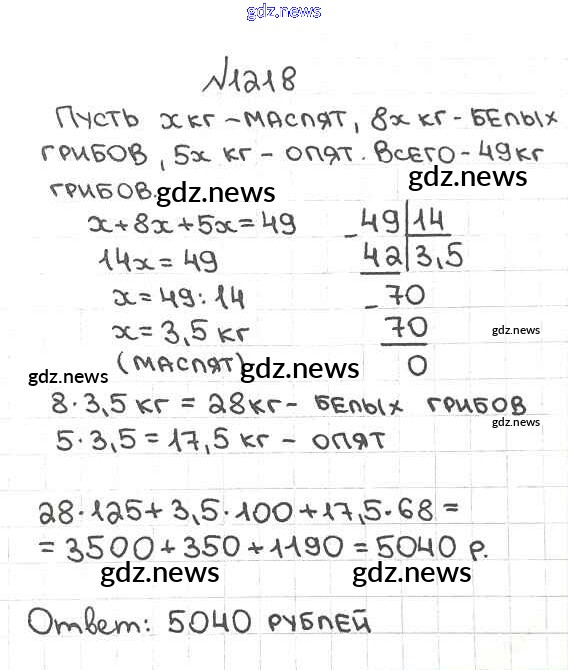 gdz.news
№1218
Пусть х кг - маслят, 8х кг - белых
грибов, 5х кг - опят. Всего - 49 кг
gdz.news
грибов. gdz.news
х+8х+5х=49 - 49 14
14х=49 42 3,5
х=49:14 - 70
х=3,5 кг 70 gdz.news
(маслят) gdz.news 0
gdz.news
8·3,5 кг = 28 кг - белых грибов
gdz.news
5·3,5=17,5 кг - опят
28·125+3,5·100+17,5·68=
=3500+350+1190=5040 р.
gdz.news gdz.news
Ответ: 5040 рублей